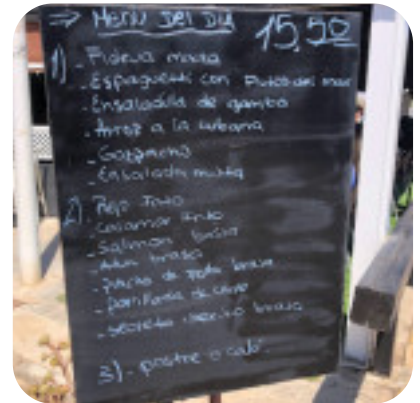 ⇒ Menu Del Dia 15,50
1)
- Fideua mixta
- Espaguetti con Frutos del mar
- Ensaladilla de gamba
- Arroz a la cubana
- Gazpacho
- Ensalada mixta
2)
- Calamar frito
- Salmon brasa
- brasa
- de pollo brasa
- de cerdo
- secreto iberico brasa
3) - postre o cafe